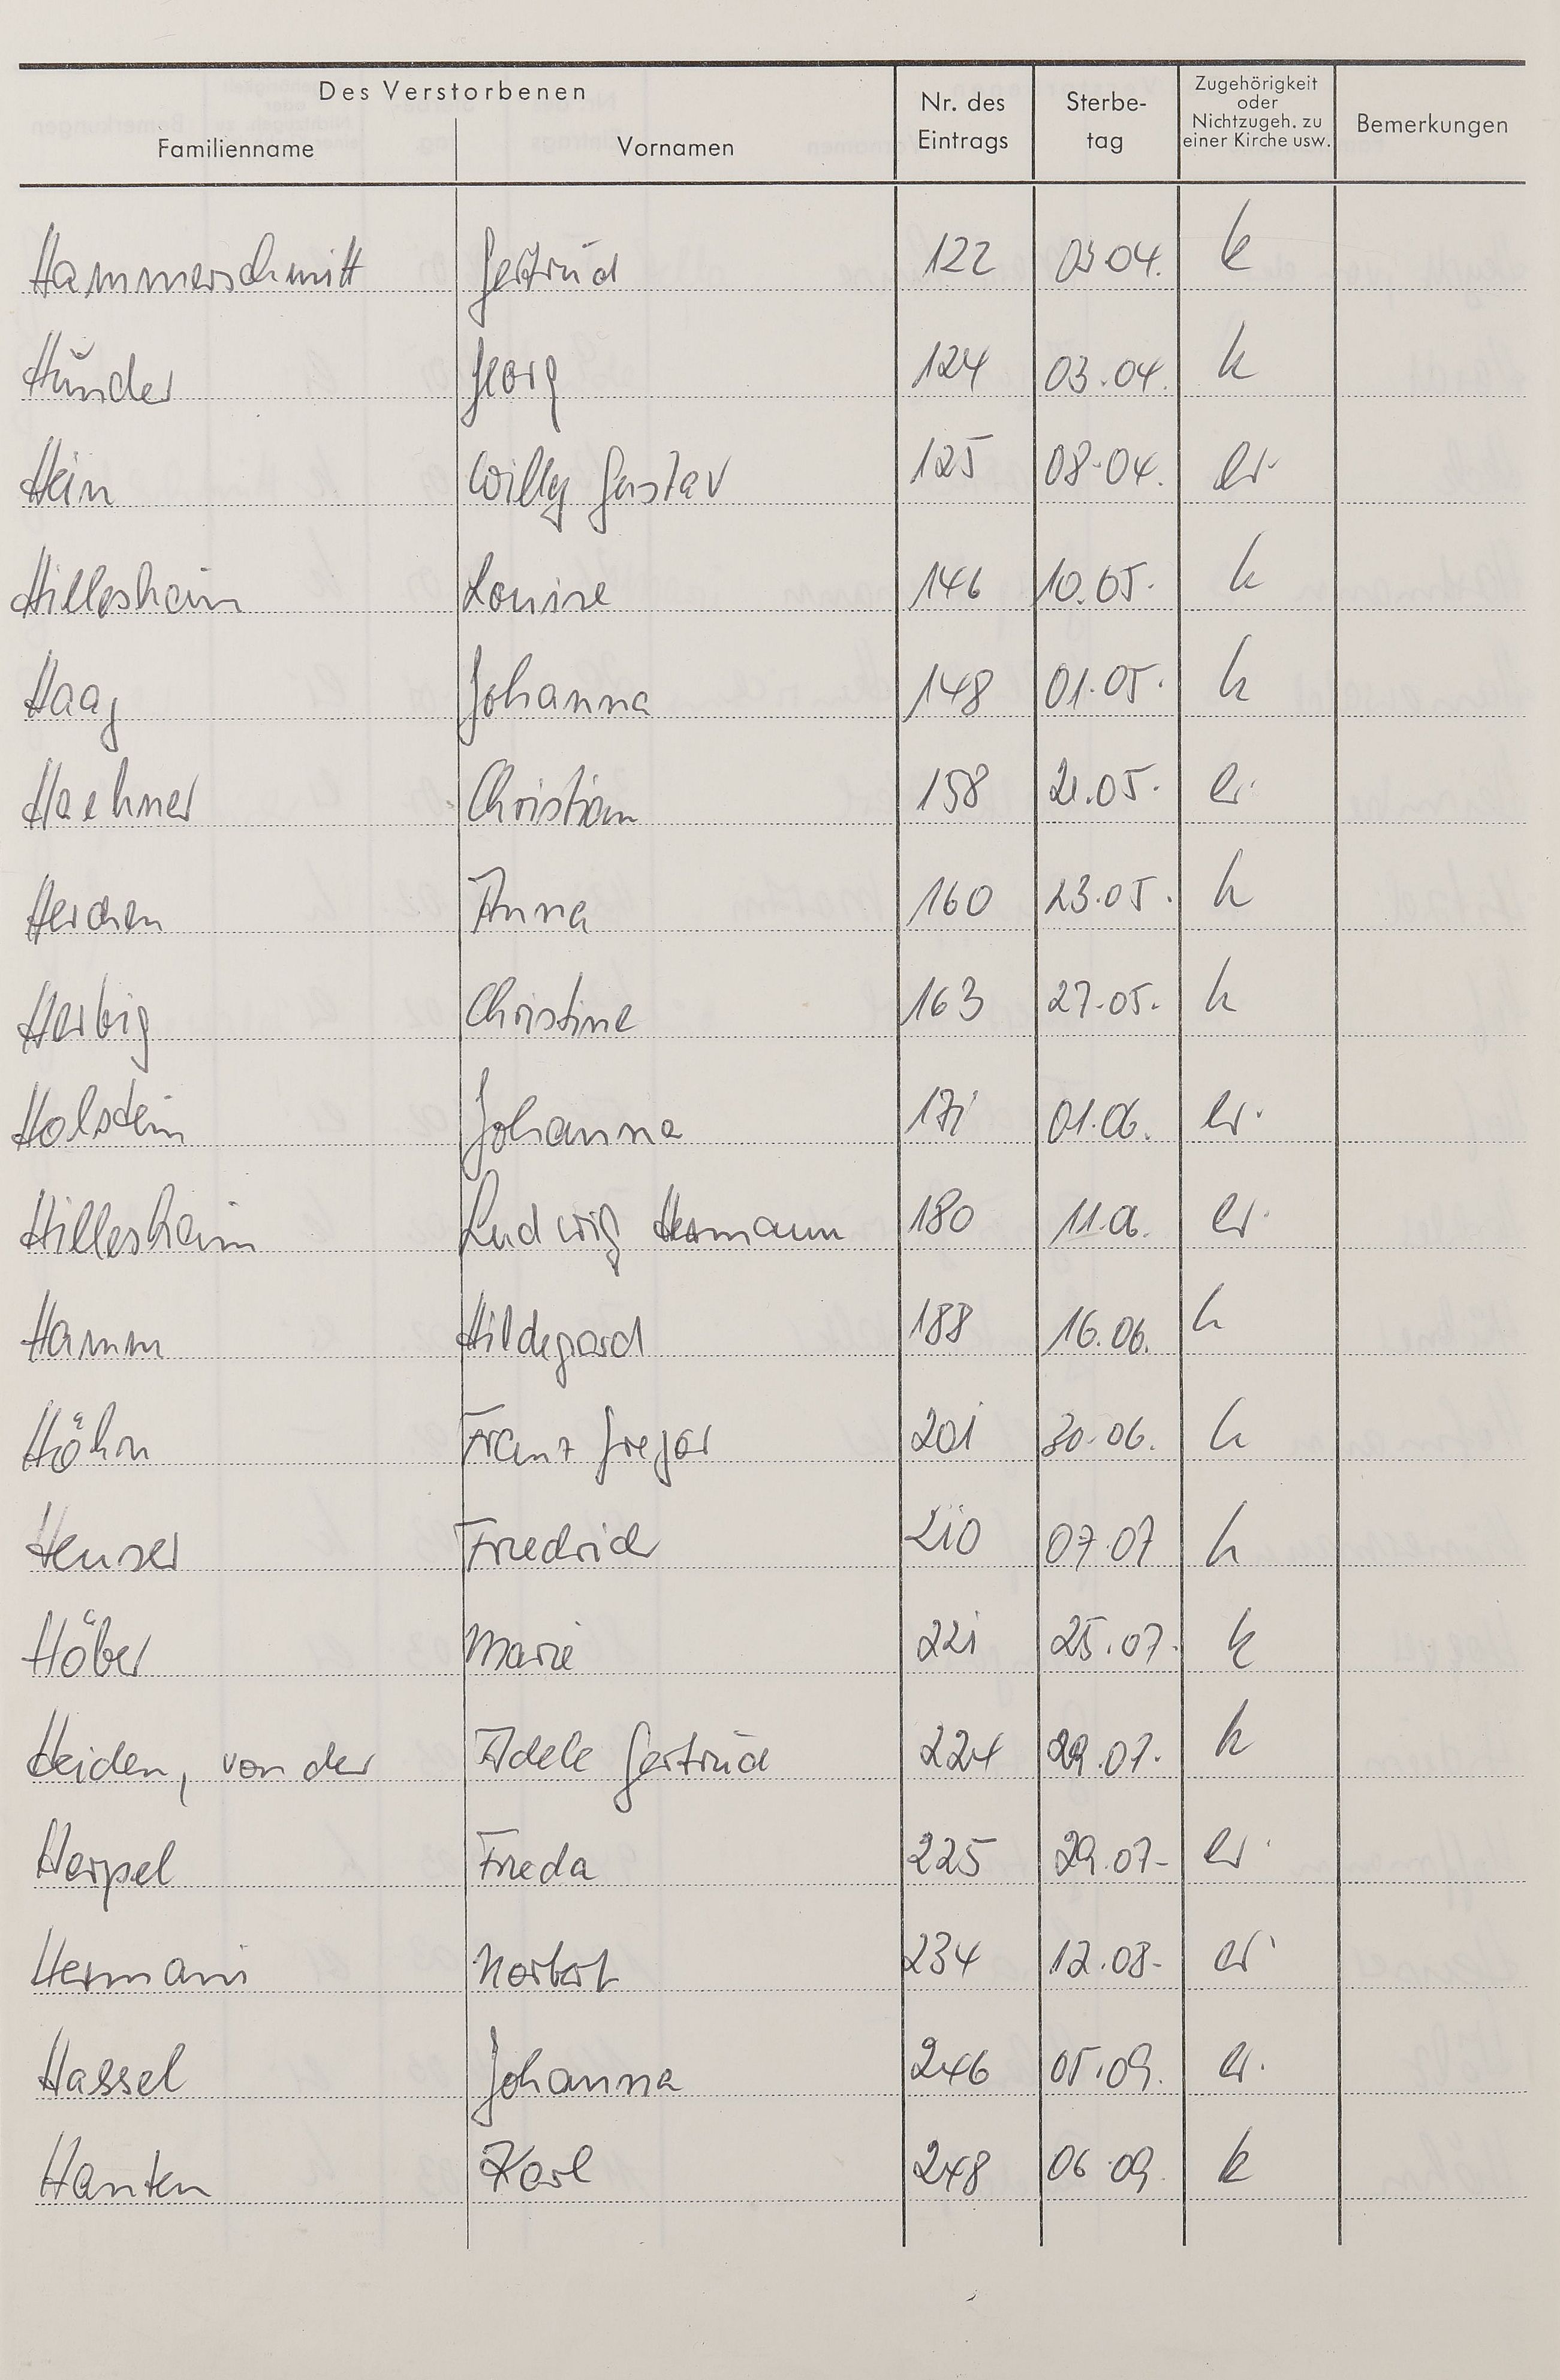 Des Verstorbenen
Familienname Vornamen Nr. des Eintrags Sterbe-tag Zugehörigkeit oder Nichtzugeh. zu einer Kirche usw. Bemerkungen
Hammerschmitt Gertrud 122 03.04. k
Hünder Georg 124 03.04. k
Hein Willy Gustav 125 08.04. ev.
Hillesheim Louise 146 10.05. k
Haag Johanna 148 01.05. k
Haehner Christian 158 21.05. ev.
Herchen Anna 160 23.05. k
Herbig Christine 163 27.05. k
Holstein Johanna 171 01.06. ev.
Hillesheim Ludwig Hermann 180 11.06. ev.
Hamm Hildegard 188 16.06. k
Höhn Franz Gregor 201 30.06. k
Heuser Friedrich 210 07.07 k
Höber Marie 221 25.07. k
Heiden, von der Adele Gertrud 224 29.07. k
Herpel Frieda 225 29.07. ev.
Hermani Norbert 234 12.08. ev.
Hassel Johanna 246 05.09. ev.
Hanten Karl 248 06.09. k